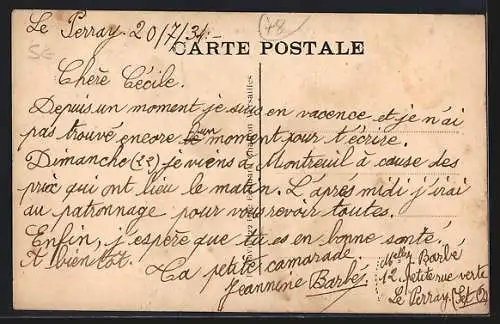 Le Perray. 20/7/34.-
78
CARTE POSTALE
Chère Cécile.
Depuis un moment je suis en vacence et je n'ai
pas trouvé encore un moment pour t'écrire.
Dimanche (22) je viens à Montreuil à cause des
prix qui ont lieu le matin. L'après midi j'irai
au patronnage pour vous revoir toutes.
Enfin, j'espère que tu es en bonne santé.
A bientôt.
La petite camarade.
Jeannine Barbé.
Melle Barbé
12 petite rue verte
Le Perray (Set O)